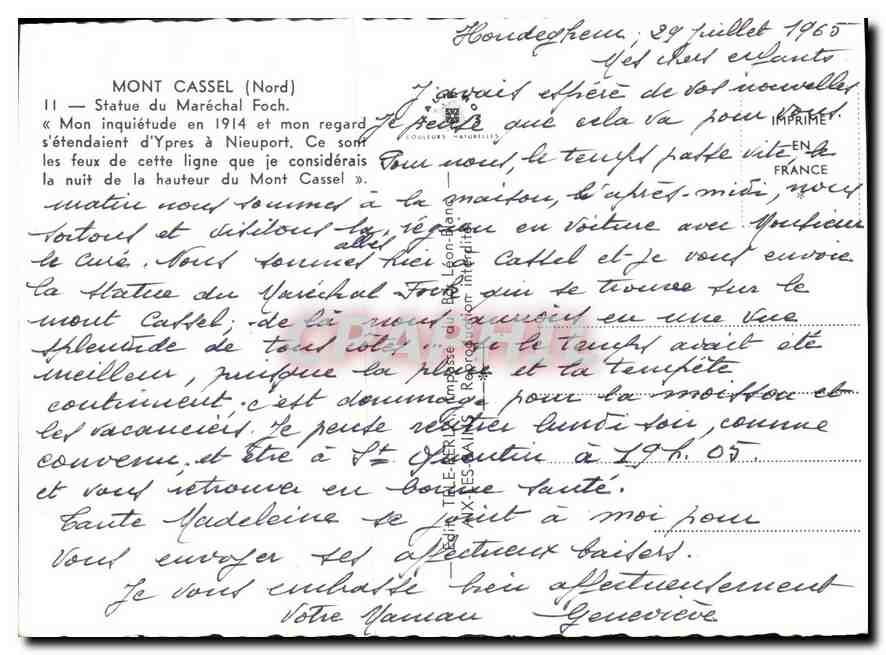 Hondeghem, 29 juillet 1965
Mes chers enfants
J'avais espéré de vos nouvelles
Je pense que cela va pour vous.
Pour nous, le temps passe vite, le
matin nous sommes à la maison, l'après-midi, nous
sortons et visitons la région en voiture avec Monsieur
le curé. Nous sommes allés hier à Cassel et je vous envoie
la statue du Maréchal Foch qui se trouve sur le
mont Cassel; de là nous aurions eu une vue
splendide de tous côtés ... si le temps avait été
meilleur, puisque la pluie et la tempête
continuent, c'est dommage pour la moisson et
les vacanciers. Je pense rentrer lundi soir, comme
convenu, et être à St Quentin à 19h.05.
et vous retrouver en bonne santé.
Tante Madeleine se joint à moi pour
vous envoyer ses affectueux baisers.
Je vous embrasse bien affectueusement
Votre Maman Geneviève
MONT CASSEL (Nord)
11 — Statue du Maréchal Foch.
« Mon inquiétude en 1914 et mon regard
s'étendaient d'Ypres à Nieuport. Ce sont
les feux de cette ligne que je considérais
la nuit de la hauteur du Mont Cassel ».
COULEURS NATURELLES
IMPRIMÉ
EN
FRANCE
Impasse du Bd Léon-Blanc
AIX-LES-BAINS Reproduction interdite